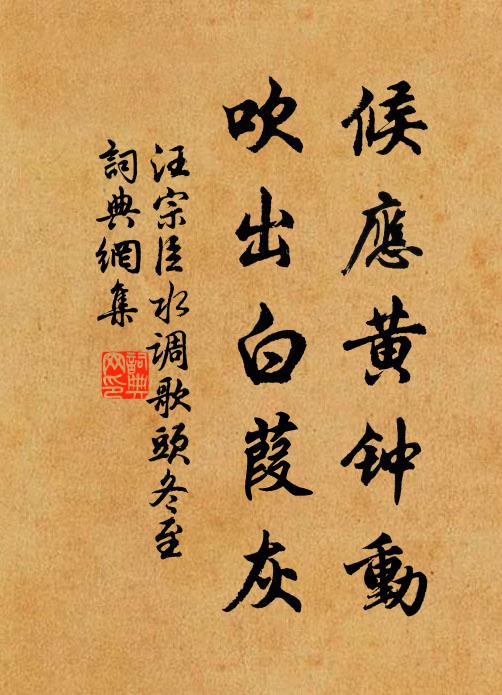 候應黄钟動
吹出白葭灰
汪宗臣水调歌頭冬至
詞典網集
詞典网印